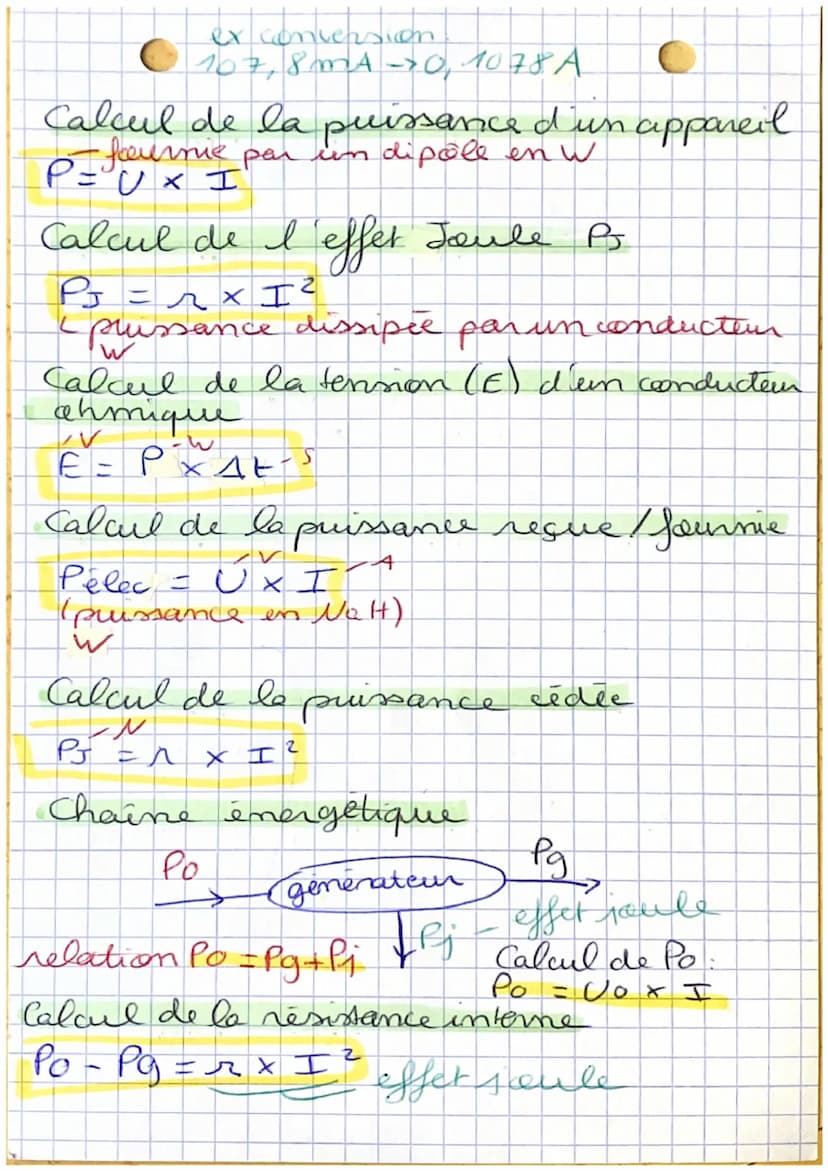 ex conversion
107,8mA → 0,1078A
Calcul de la puissance d'un appareil
- fournie par un dipôle en W
P = U x I
Calcul de l'effet Joule PJ
PJ = r x I²
puissance dissipée par un conducteur
W
Calcul de la tension (E) d'un conducteur
ohmique
V -W
E = P x Δt -S
Calcul de la puissance reçue/fournie
V A
Pélec = U x I
(puissance en
W
Calcul de la puissance cédée
PJ = r x I²
Chaîne énergétique
Po générateur Pg
Pj - effet joule
relation Po = Pg + Pj
Calcul de Po :
Po = Uo x I
Calcul de la résistance interne
Po - Pg = r x I² effet joule